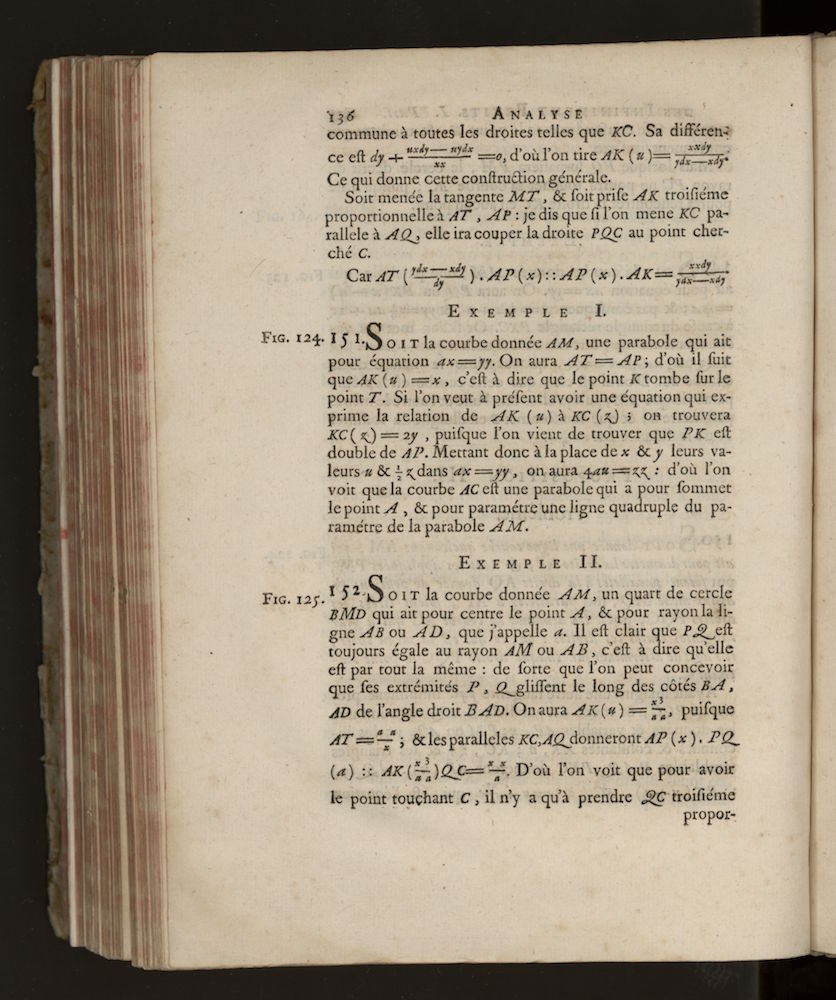 136 ANALYSE
commune à toutes les droites telles que KC. Sa différen-
ce eſt dy + (uxdy — uydx)/xx = o, d'où l'on tire AK (u) = xxdy/(ydx—xdy).
Ce qui donne cette conſtruction générale.
Soit menée la tangente MT, & ſoit priſe AK troiſiéme
proportionnelle à AT, AP : je dis que ſi l'on mene KC pa-
rallele à AQ, elle ira couper la droite PQC au point cher-
ché C.
Car AT ((ydx — xdy)/dy) . AP (x) :: AP (x) . AK = xxdy/(ydx—xdy)
EXEMPLE I.
FIG. 124. 151. SOIT la courbe donnée AM, une parabole qui ait
pour équation ax=yy. On aura AT=AP; d'où il ſuit
que AK (u) =x, c'eſt à dire que le point K tombe ſur le
point T. Si l'on veut à préſent avoir une équation qui ex-
prime la relation de AK (u) à KC (z) ; on trouvera
KC (z) = 2y, puiſque l'on vient de trouver que PK eſt
double de AP. Mettant donc à la place de x & y leurs va-
leurs u & ½ z dans ax=yy, on aura 4au=zz : d'où l'on
voit que la courbe AC eſt une parabole qui a pour ſommet
le point A, & pour paramétre une ligne quadruple du pa-
ramétre de la parabole AM.
EXEMPLE II.
FIG. 125. 152. SOIT la courbe donnée AM, un quart de cercle
BMD qui ait pour centre le point A, & pour rayon la li-
gne AB ou AD, que j'appelle a. Il eſt clair que PQ eſt
toujours égale au rayon AM ou AB, c'eſt à dire qu'elle
eſt par tout la même : de ſorte que l'on peut concevoir
que ſes extrémités P, Q gliſſent le long des côtés BA,
AD de l'angle droit BAD. On aura AK (u) = x³/aa, puiſque
AT = aa/x ; & les paralleles KC, AQ donneront AP (x) . PQ
(a) :: AK (x³/aa) QC = xx/a. D'où l'on voit que pour avoir
le point touchant C, il n'y a qu'à prendre QC troiſiéme
propor-